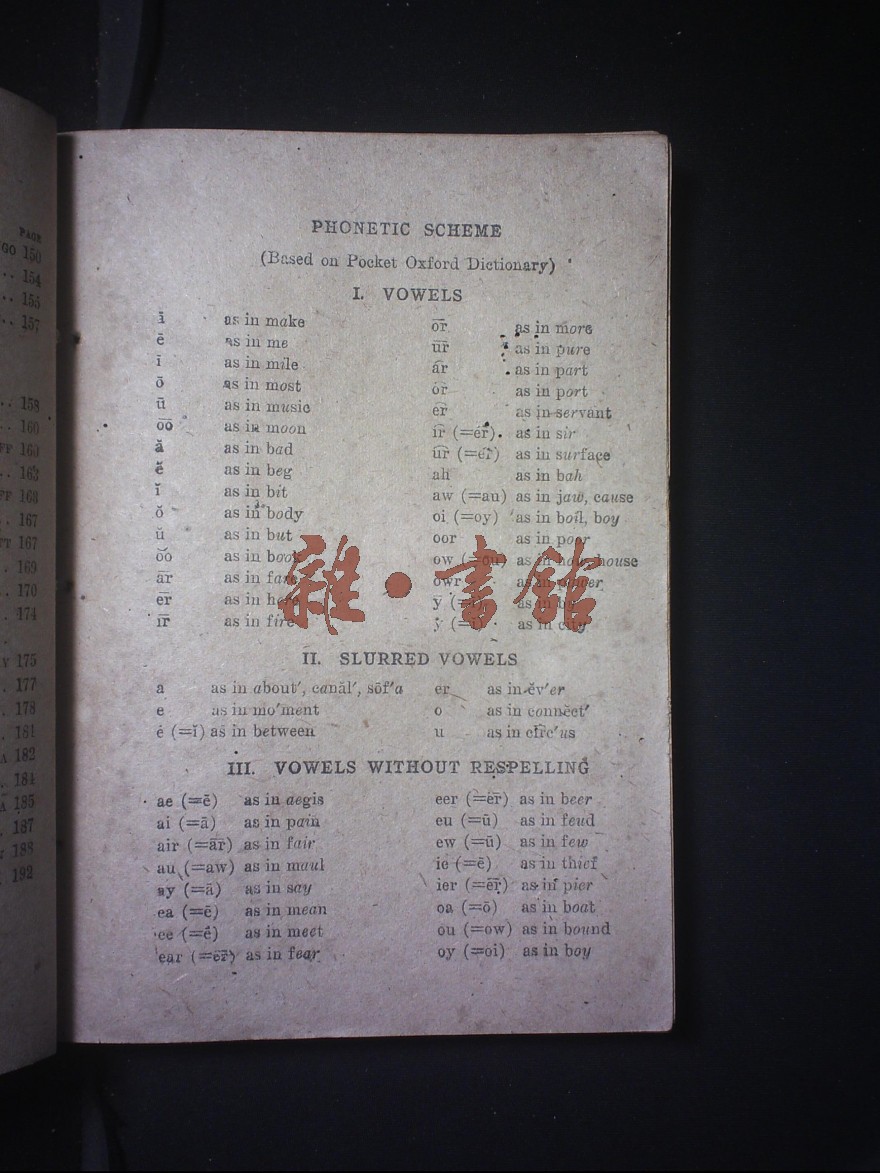 PAGE
GO 150
.. 154
.. 155
.. 157
.. 158
.. 160
FF 160
.. 163
FF 168
.. 167
FT 167
. 169
. 170
. 174
Y 175
. 177
. 178
. 181
A 182
. 184
A 185
. 187
188
. 192
PHONETIC SCHEME
(Based on Pocket Oxford Dictionary)
I. VOWELS
as in make
ē as in me
ī as in mile
ō as in most
ū as in music
o͞o as in moon
ă as in bad
ĕ as in beg
ĭ as in bit
ŏ as in body
ŭ as in but
o͝o as in book
ār as in fare
ēr as in here
īr as in fire
ōr as in more
ūr as in pure
âr as in part
ôr as in port
êr as in servant
îr (=êr). as in sir
ûr (=êr) as in surface
ah as in bah
aw (=au) as in jaw, cause
oi (=oy) as in boil, boy
oor as in poor
ow (=ou) as in how, house
owr as in
ȳ as in
y̆ (=ĭ) as in city
雜·書館
II. SLURRED VOWELS
a as in about′, canăl′, sōf′a
e as in mo′ment
ė (=ĭ) as in between
er as in ĕv′er
o as in connĕct′
u as in cîrc′us
III. VOWELS WITHOUT RESPELLING
ae (=ē) as in aegis
ai (=ā) as in pain
air (=ār) as in fair
au (=aw) as in maul
ay (=ā) as in say
ea (=ē) as in mean
ee (=ē) as in meet
ear (=ēr) as in fear
eer (=ēr) as in beer
eu (=ū) as in feud
ew (=ū) as in few
ie (=ē) as in thief
ier (=ēr) as in pier
oa (=ō) as in boat
ou (=ow) as in bound
oy (=oi) as in boy